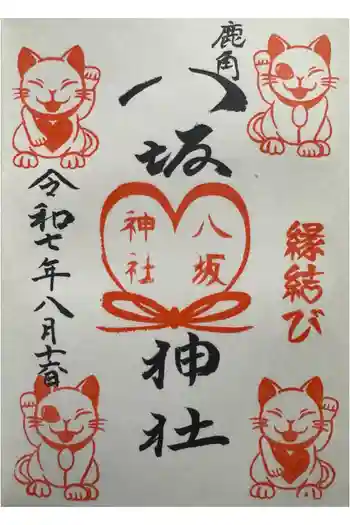 鹿角
八坂
神社
八坂
神社
縁結び
令和七年八月十六日